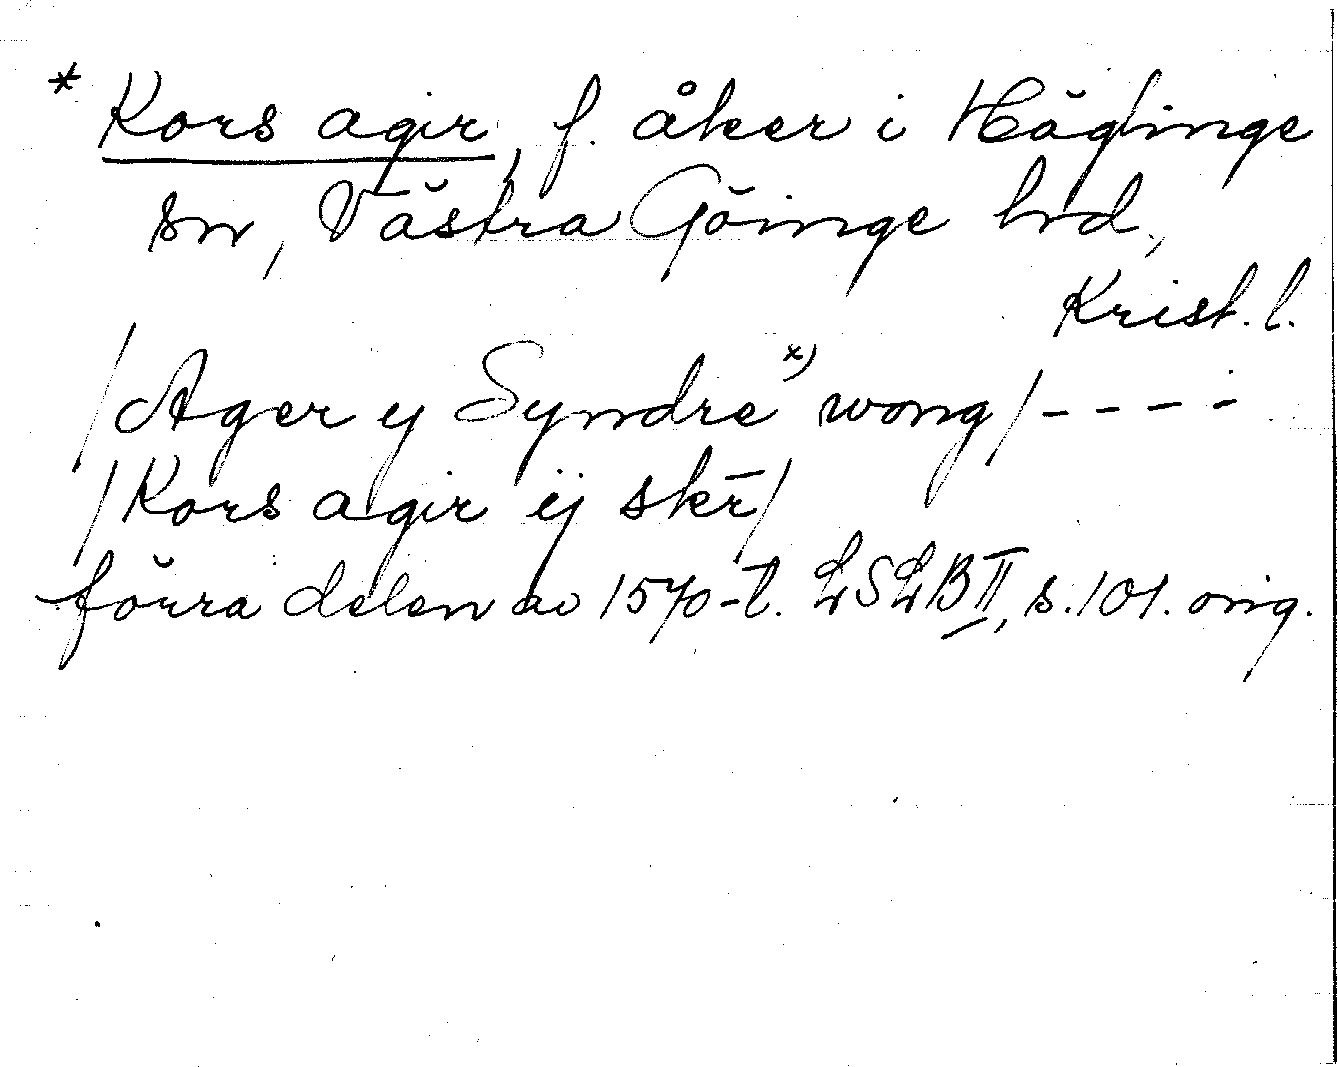 * Kors agir, f. åker i Häglinge
sn, Västra Göinge hrd,
Krist. l.
/Ager y Syndre *) wong/ - - - -
/Kors agir ij skr̄/
förra delen av 1570-t. LSLB II, s. 101. orig.